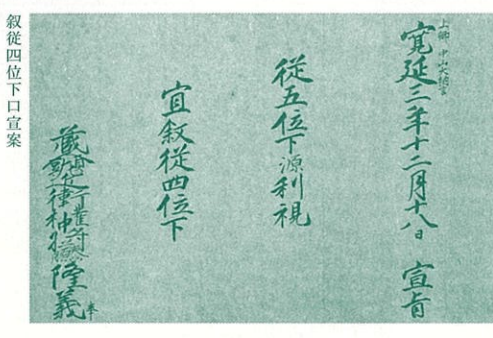 上卿 中山大納言
寛延三年十二月十八日 宣旨
従五位下源利視
宜叙従四位下
蔵人 隆義奉
叙従四位下口宣案